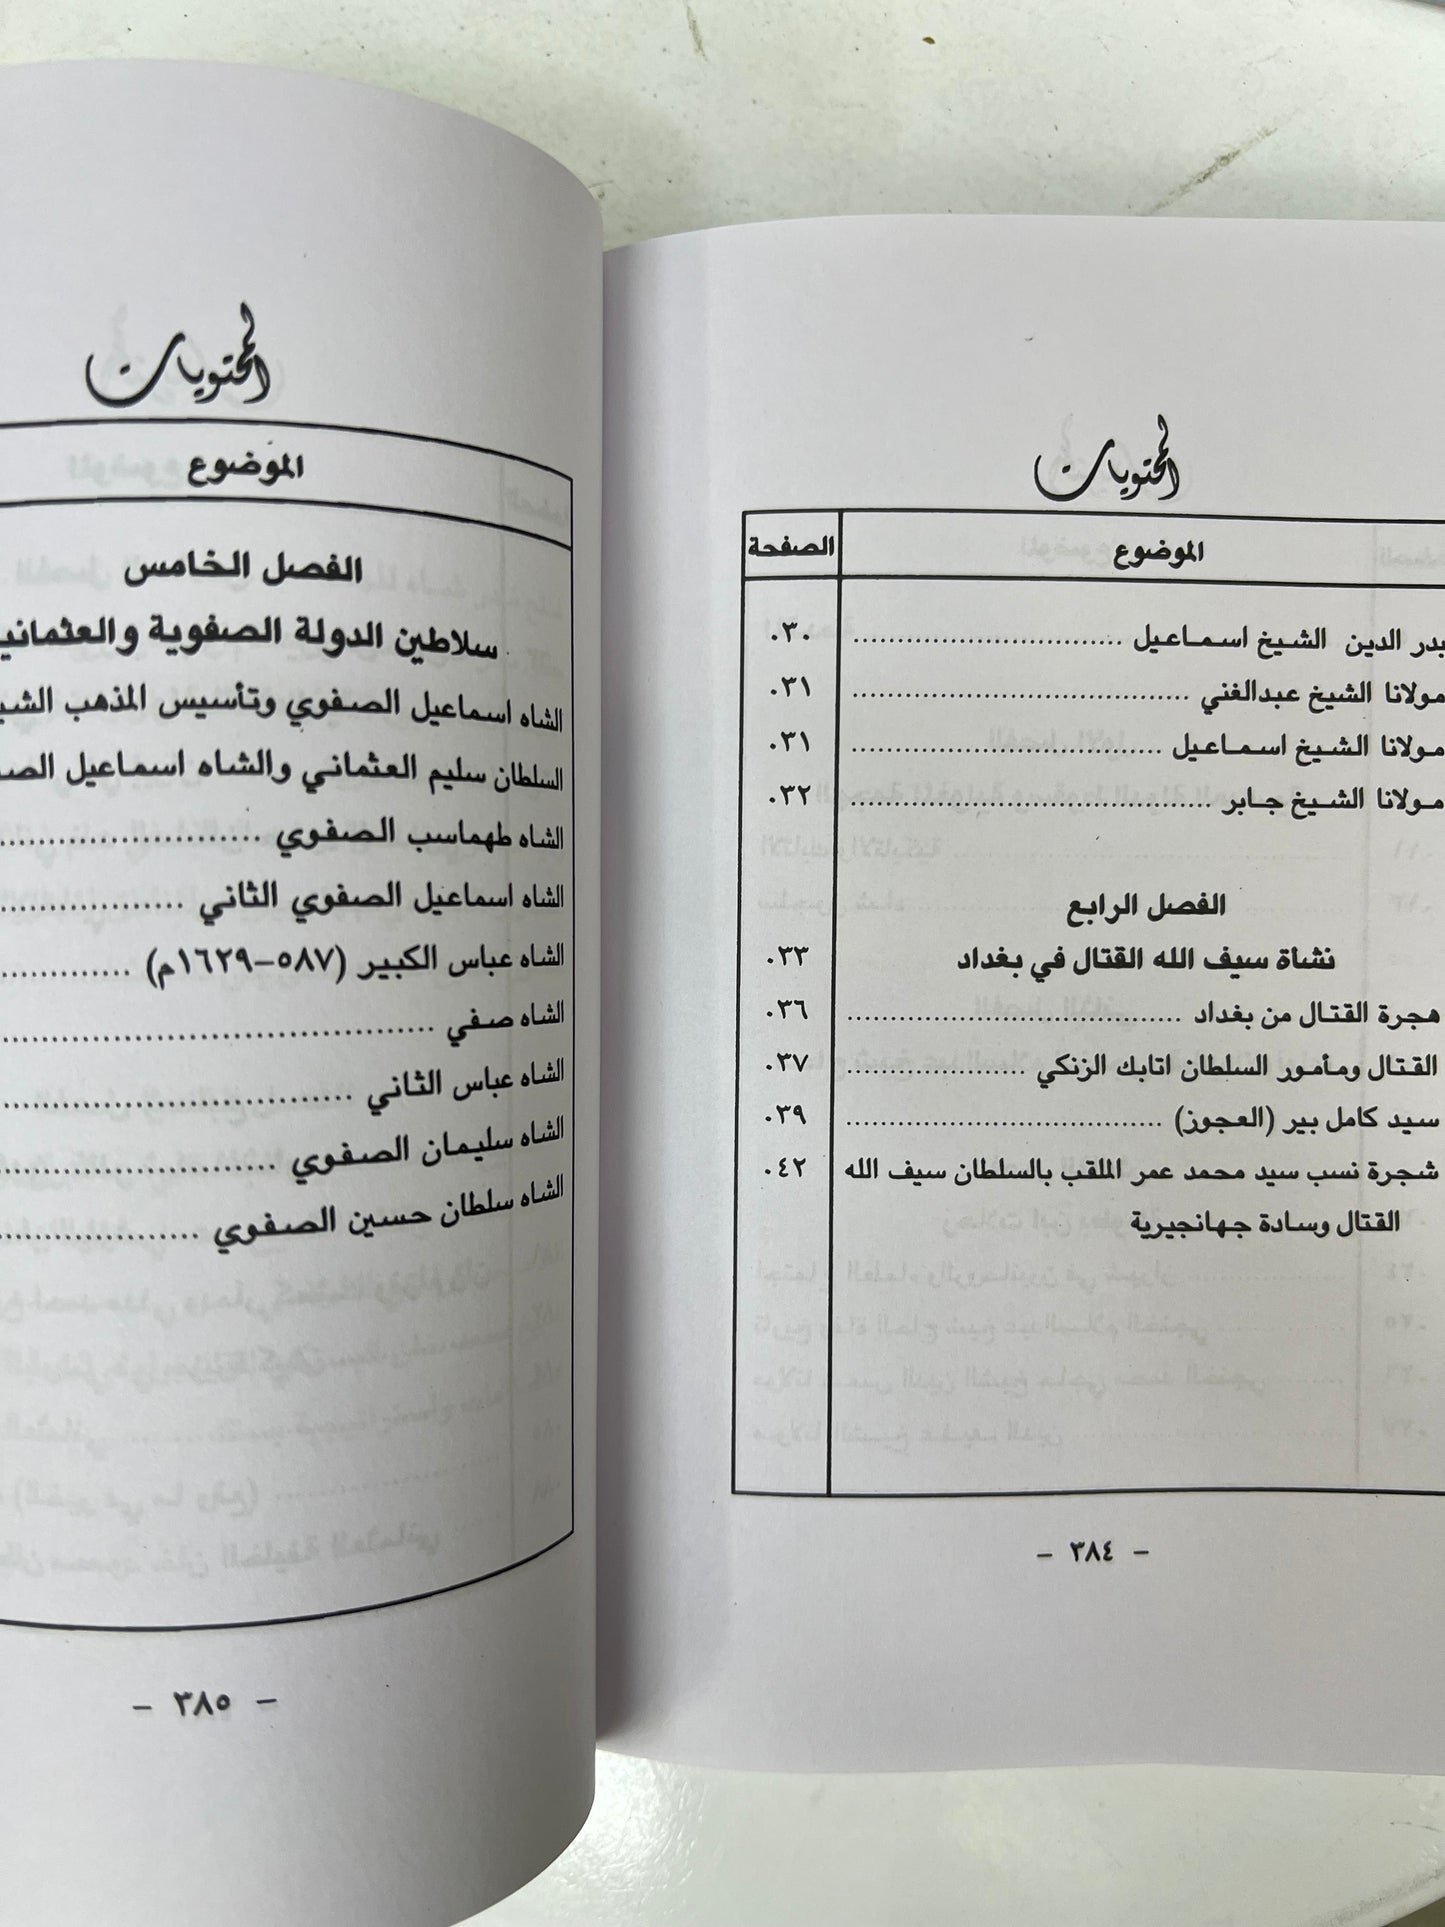 المحتويات
الموضوع الصفحة
بدر الدين الشيخ اسماعيل .............................. ٠٣٠
مولانا الشيخ عبدالغني .............................. ٠٣١
مولانا الشيخ اسماعيل .............................. ٠٣١
مولانا الشيخ جابر .............................. ٠٣٢
الفصل الرابع
نشاة سيف الله القتال في بغداد ٠٣٣
هجرة القتال من بغداد .............................. ٠٣٦
القتال ومأمور السلطان اتابك الزنكي .................... ٠٣٧
سيد كامل بير (العجوز) .............................. ٠٣٩
شجرة نسب سيد محمد عمر الملقب بالسلطان سيف الله ٠٤٢
القتال وسادة جهانجيرية
– ٣٨٤ –
المحتويات
الموضوع
الفصل الخامس
سلاطين الدولة الصفوية
الشاه اسماعيل الصفوي وتأسيس المذهب
السلطان سليم العثماني والشاه اسماعيل
الشاه طهماسب الصفوي ....................
الشاه اسماعيل الصفوي الثاني ..................
الشاه عباس الكبير (٥٨٧–١٦٢٩م) .............
الشاه صفي ..............................
الشاه عباس الثاني ..............................
الشاه سليمان الصفوي .........................
الشاه سلطان حسين الصفوي ....................
– ٣٨٥ –